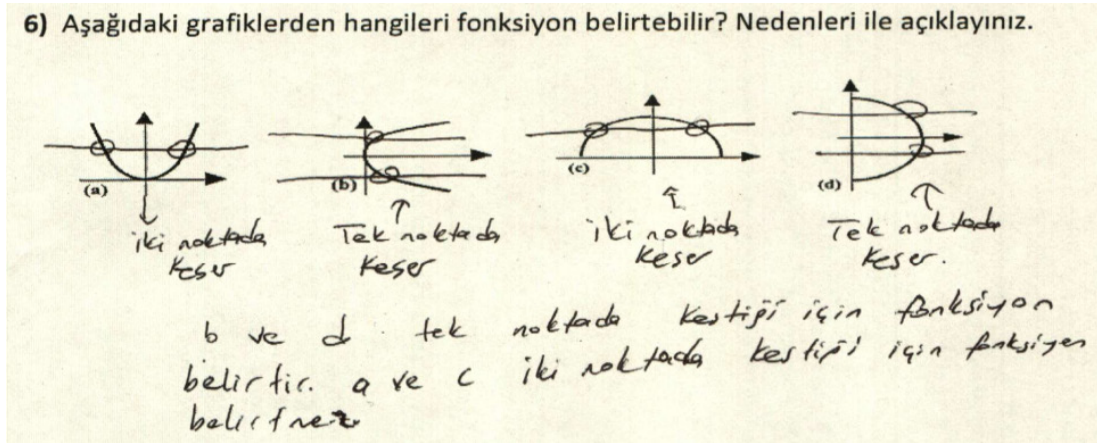 6) Aşağıdaki grafiklerden hangileri fonksiyon belirtebilir? Nedenleri ile açıklayınız.
(a) (b) (c) (d)
iki noktada Tek noktada iki noktada Tek noktada
keser keser keser keser.
b ve d tek noktada kestiği için fonksiyon
belirtir. a ve c iki noktada kestiği için fonksiyon
belirtmez